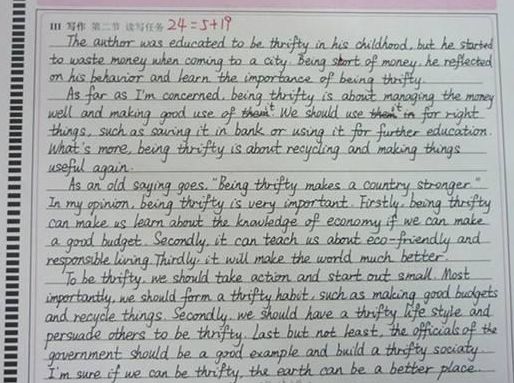 III 写作 第二节 读写任务 24=5+19
The author was educated to be thrifty in his childhood, but he started
to waste money when coming to a city. Being short of money, he reflected
on his behavior and learn the importance of being thrifty.
As far as I'm concerned, being thrifty is about managing the money
well and making good use of it. We should use it for right
things, such as saving it in bank or using it for further education.
What's more, being thrifty is about recycling and making things
useful again.
As an old saying goes, "Being thrifty makes a country stronger."
In my opinion, being thrifty is very important. Firstly, being thrifty
can make us learn about the knowledge of economy if we can make
a good budget. Secondly, it can teach us about eco-friendly and
responsible living. Thirdly, it will make the world much better.
To be thrifty, we should take action and start out small. Most
importantly, we should form a thrifty habit, such as making good budgets
and recycle things. Secondly, we should have a thrifty life style and
persuade others to be thrifty. Last but not least, the officials of the
government should be a good example and build a thrifty sociaty.
I'm sure if we can be thrifty, the earth can be a better place.